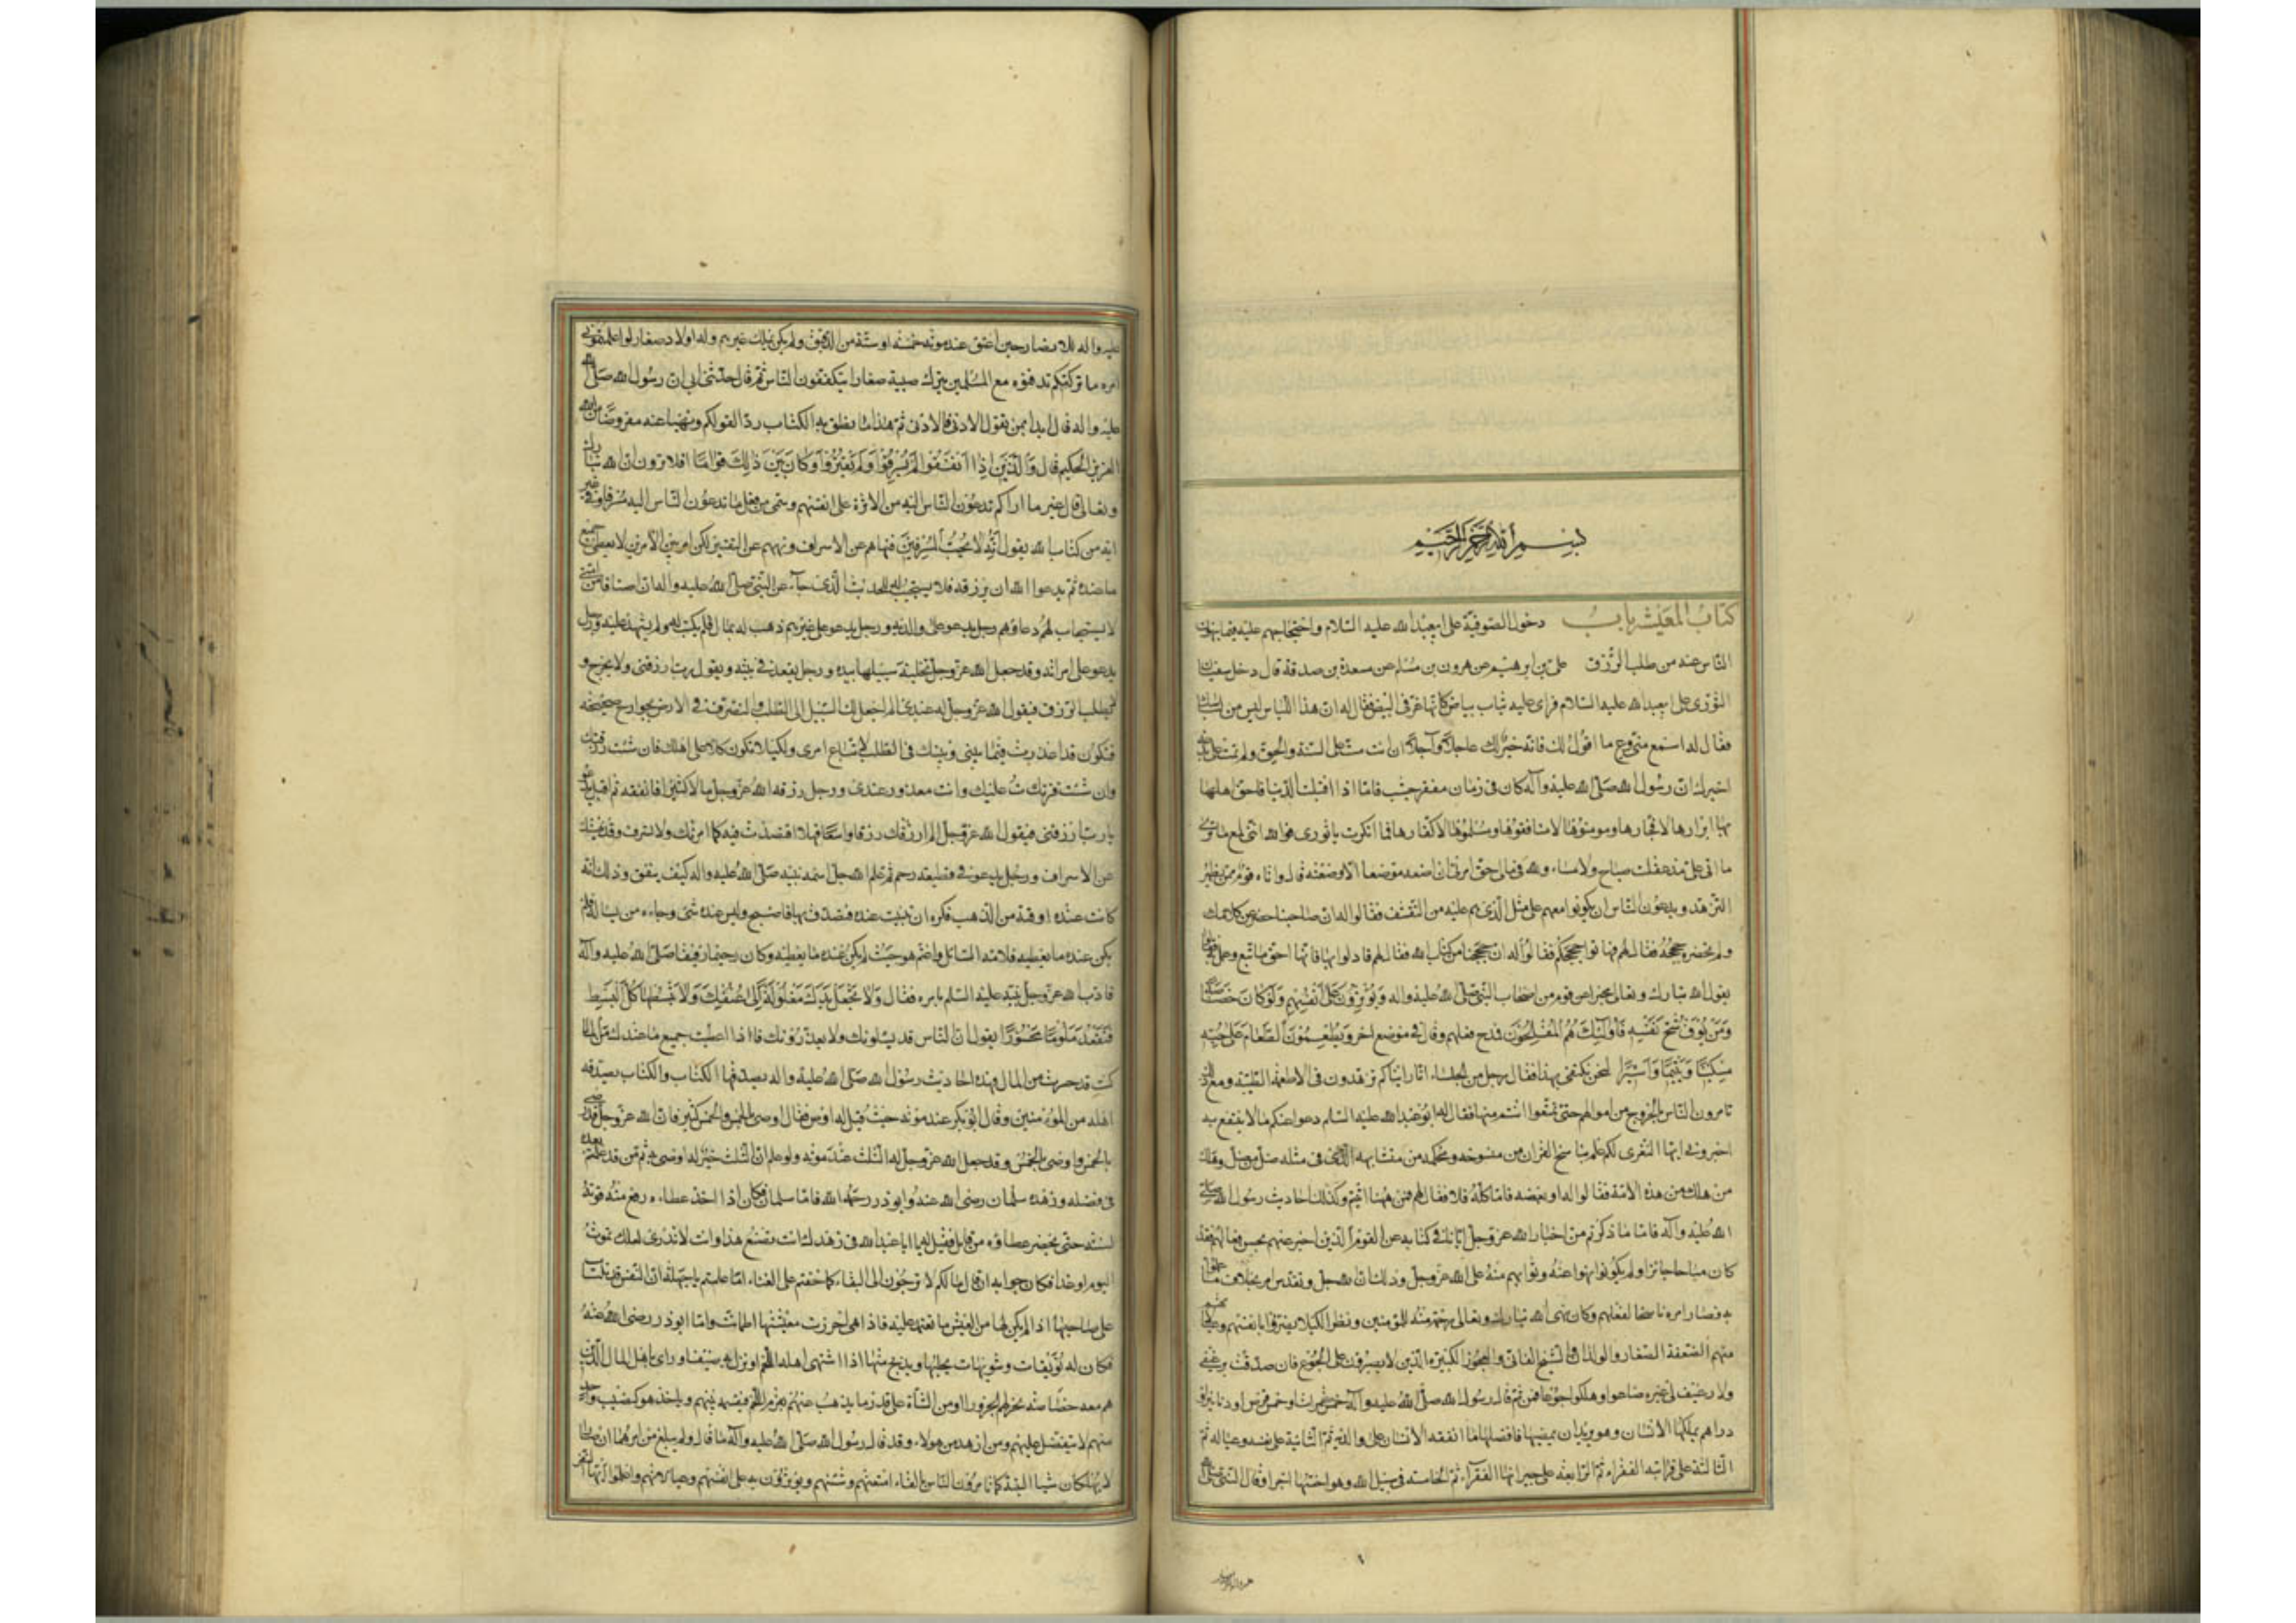 بسم الله الرحمن الرحيم
كتاب المعيشة باب دخول الصوفية على ابي عبدالله عليه السلام واحتجاجهم عليه فيما ينهون
الناس عنه من طلب الرزق علي بن ابرهيم عن هرون بن مسلم عن مسعدة بن صدقة قال دخل سفيان
الثورى على ابي عبدالله عليه السلام فراى عليه ثياب بياض كانها غرقى البيض فقال له ان هذا اللباس ليس من لباسك
فقال له اسمع منى وع ما اقول لك فانه خير لك عاجلا وآجلا ان انت مت على السنة والحق ولم تمت على بدعة
اخبرك ان رسول الله صلى الله عليه وآله كان فى زمان مقفر جشب فاما اذا اقبلت الدنيا فاحق اهلها
بها ابرارها لا فجارها ومومنوها لا منافقوها ومسلموها لا كفارها فما انكرت يا ثورى فوالله اننى لمع ما ترى
ما اتى على مذ عقلت صباح ولا مساء ولله فى مالى حق امرنى ان اضعه موضعا الا وضعته قال واتاه قوم ممن يظهر
التزهد ويدعون الناس ان يكونوا معهم على مثل الذى هم عليه من التقشف فقالوا له ان صاحبنا حصر عن كلامك
ولم تحضره حججه فقال لهم فهاتوا حججكم فقالوا له ان حججنا من كتاب الله فقال لهم فادلوا بها فانها احق ما اتبع وعمل به فقالوا
يقول الله تبارك وتعالى مخبرا عن قوم من اصحاب النبى صلى الله عليه واله ويؤثرون على انفسهم ولو كان بهم خصاصة
ومن يوق شح نفسه فاولئك هم المفلحون فمدح فعلهم وقال فى موضع اخر ويطعمون الطعام على حبه
مسكينا ويتيما واسيرا فنحن نكتفى بهذا فقال رجل من الجلساء انا رايناكم تزهدون فى الاطعمة الطيبة ومع ذلك
تامرون الناس بالخروج من اموالهم حتى تمتعوا انتم منها فقال له ابو عبدالله عليه السلم دعوا عنكم ما لا ينتفع به
اخبرونى ايها النفر الكم علم بناسخ القران من منسوخه ومحكمه من متشابهه الذى فى مثله ضل من ضل وهلك
من هلك من هذه الامة فقالوا له او بعضه فاما كله فلا فقال لهم فمن هيهنا اتيتم وكذلك احاديث رسول الله صلى
الله عليه وآله فاما ما ذكرتم من اخبار الله عز وجل ايانا فى كتابه عن القوم الذين اخبر عنهم بحسن فعالهم فقد
كان مباحا جائزا ولم يكونوا نهوا عنه وثوابهم منه على الله عز وجل وذلك ان الله جل وتقدس امر بخلاف ما عملوا
به فصار امره ناسخا لفعلهم وكان نهى الله تبارك وتعالى رحمة منه للمؤمنين ونظرا لكيلا يضروا بانفسهم وعيالاتهم
منهم الضعفة الصغار والولدان والشيخ الفانى والعجوز الكبيرة الذين لا يصبرون على الجوع فان تصدقت برغيفى
ولا رغيف لى غيره ضاعوا وهلكوا جوعا فمن ثم قال رسول الله صلى الله عليه وآله خمس تمرات او خمس قرص او دنانير او
دراهم يملكها الانسان وهو يريد ان يمضيها فافضلها ما انفقه الانسان على والديه ثم الثانية على نفسه وعياله ثم
الثالثة على قرابته الفقراء ثم الرابعة على جيرانها الفقراء ثم الخامسة فى سبيل الله وهو اخسها اجرا وقال النبى صلى الله
عليه واله للانصارى حين اعتق عند موته خمسة او ستة من الرقيق ولم يكن يملك غيرهم وله اولاد صغار لو اعلمتمونى
امره ما تركتكم تدفنوه مع المسلمين يترك صبية صغارا يتكففون الناس ثم قال حدثنى ابى ان رسول الله صلى الله
عليه واله قال ابدا بمن تعول الادنى فالادنى ثم هذا ما نطق به الكتاب ردا لقولكم ونهيا عنه مفروضا من الله
العزيز الحكيم قال والذين اذا انفقوا لم يسرفوا ولم يقتروا وكان بين ذلك قواما افلا ترون ان الله تبارك
وتعالى قال غير ما اراكم تدعون الناس اليه من الاثرة على انفسهم وسمى من فعل ما تدعون الناس اليه مسرفا وفى غير
اية من كتاب الله يقول انه لا يحب المسرفين فنهاهم عن الاسراف ونهيهم عن التقتير لكن امر بين الامرين لا يعطى جميع
ما عنده ثم يدعوا الله ان يرزقه فلا يستجيب له للحديث الذى جاء عن النبى صلى الله عليه واله ان اصنافا من امتى
لا يستجاب لهم دعاؤهم رجل يدعو على والديه ورجل يدعو على غريم ذهب له بمال فلم يكتب له ولم يشهد عليه ورجل
يدعو على امراته وقد جعل الله عز وجل تخلية سبيلها بيده ورجل يقعد فى بيته ويقول رب ارزقنى ولا يخرج و
لا يطلب الرزق فيقول الله عز وجل له عبدى الم اجعل لك السبيل الى الطلب والتصرف فى الارض بجوارح صحيحة
فتكون قد اعذرت فيما بينى وبينك فى الطلب لاتباع امرى ولكيلا تكون كلا على اهلك فان شئت رزقتك
وان شئت قترت عليك وانت معذور عندى ورجل رزقه الله عز وجل مالا كثيرا فانفقه ثم اقبل يدعو
يا رب ارزقنى فيقول الله عز وجل الم ارزقك رزقا واسعا فهلا اقتصدت فيه كما امرتك ولا تسرف وقد نهيتك
عن الاسراف ورجل يدعو فى قطيعة رحم ثم علم الله جل اسمه نبيه صلى الله عليه واله كيف ينفق وذلك انه
كانت عنده اوقية من الذهب فكره ان تبيت عنده فتصدق بها فاصبح وليس عنده شئ وجاءه من يساله فلم
يكن عنده ما يعطيه فلامه السائل واغتم هو حيث لم يكن عنده ما يعطيه وكان رحيما رفيقا صلى الله عليه وآله
فادب الله عز وجل نبيه عليه السلم بامره فقال ولا تجعل يدك مغلولة الى عنقك ولا تبسطها كل البسط
فتقعد ملوما محسورا يقول ان الناس قد يسئلونك ولا يعذرونك فاذا اعطيت جميع ما عندك من المال
كنت قد حسرت من المال فهذه احاديث رسول الله صلى الله عليه واله يصدقها الكتاب والكتاب يصدقه
اهله من المؤمنين وقال ابو بكر عند موته حيث قيل له اوص فقال اوصى بالخمس والخمس كثير فان الله عز وجل قد رضى
بالخمس فاوصى بالخمس وقد جعل الله عز وجل له الثلث عند موته ولو علم ان الثلث خير له اوصى به ثم من قد علمتم بعده
فى فضله وزهده سلمان رضى الله عنه وابوذر رحمه الله فاما سلمان فكان اذا اخذ عطاءه رفع منه قوته
لسنته حتى يحضر عطاؤه من قابل فقيل له يا ابا عبدالله انت فى زهدك تصنع هذا وانت لا تدرى لعلك تموت
اليوم او غدا فكان جوابه ان قال ما لكم لا ترجون لى البقاء كما خفتم على الفناء اما علمتم يا جهلة ان النفس قد تلتاث
على صاحبها اذا لم يكن لها من العيش ما تعتمد عليه فاذا هى احرزت معيشتها اطمانت واما ابوذر رضى الله عنه
فكان له نويقات وشويهات يحلبها ويذبح منها اذا اشتهى اهله اللحم او نزل به ضيف او راى باهل الماء الذين
هم معه خصاصة نحر لهم الجزور او من الشاة على قدر ما يذهب عنهم بقرم اللحم فيقسمه بينهم وياخذ هو كنصيب واحد
منهم لا يتفضل عليهم ومن ازهد من هولاء وقد قال رسول الله صلى الله عليه وآله ما قال ولم يبلغ من امرهما ان صارا
لا يملكان شيئا البتة كما تامرون الناس بالقاء امتعتهم وشيئهم ويؤثرون به على انفسهم وعيالاتهم واعلموا ايها النفر